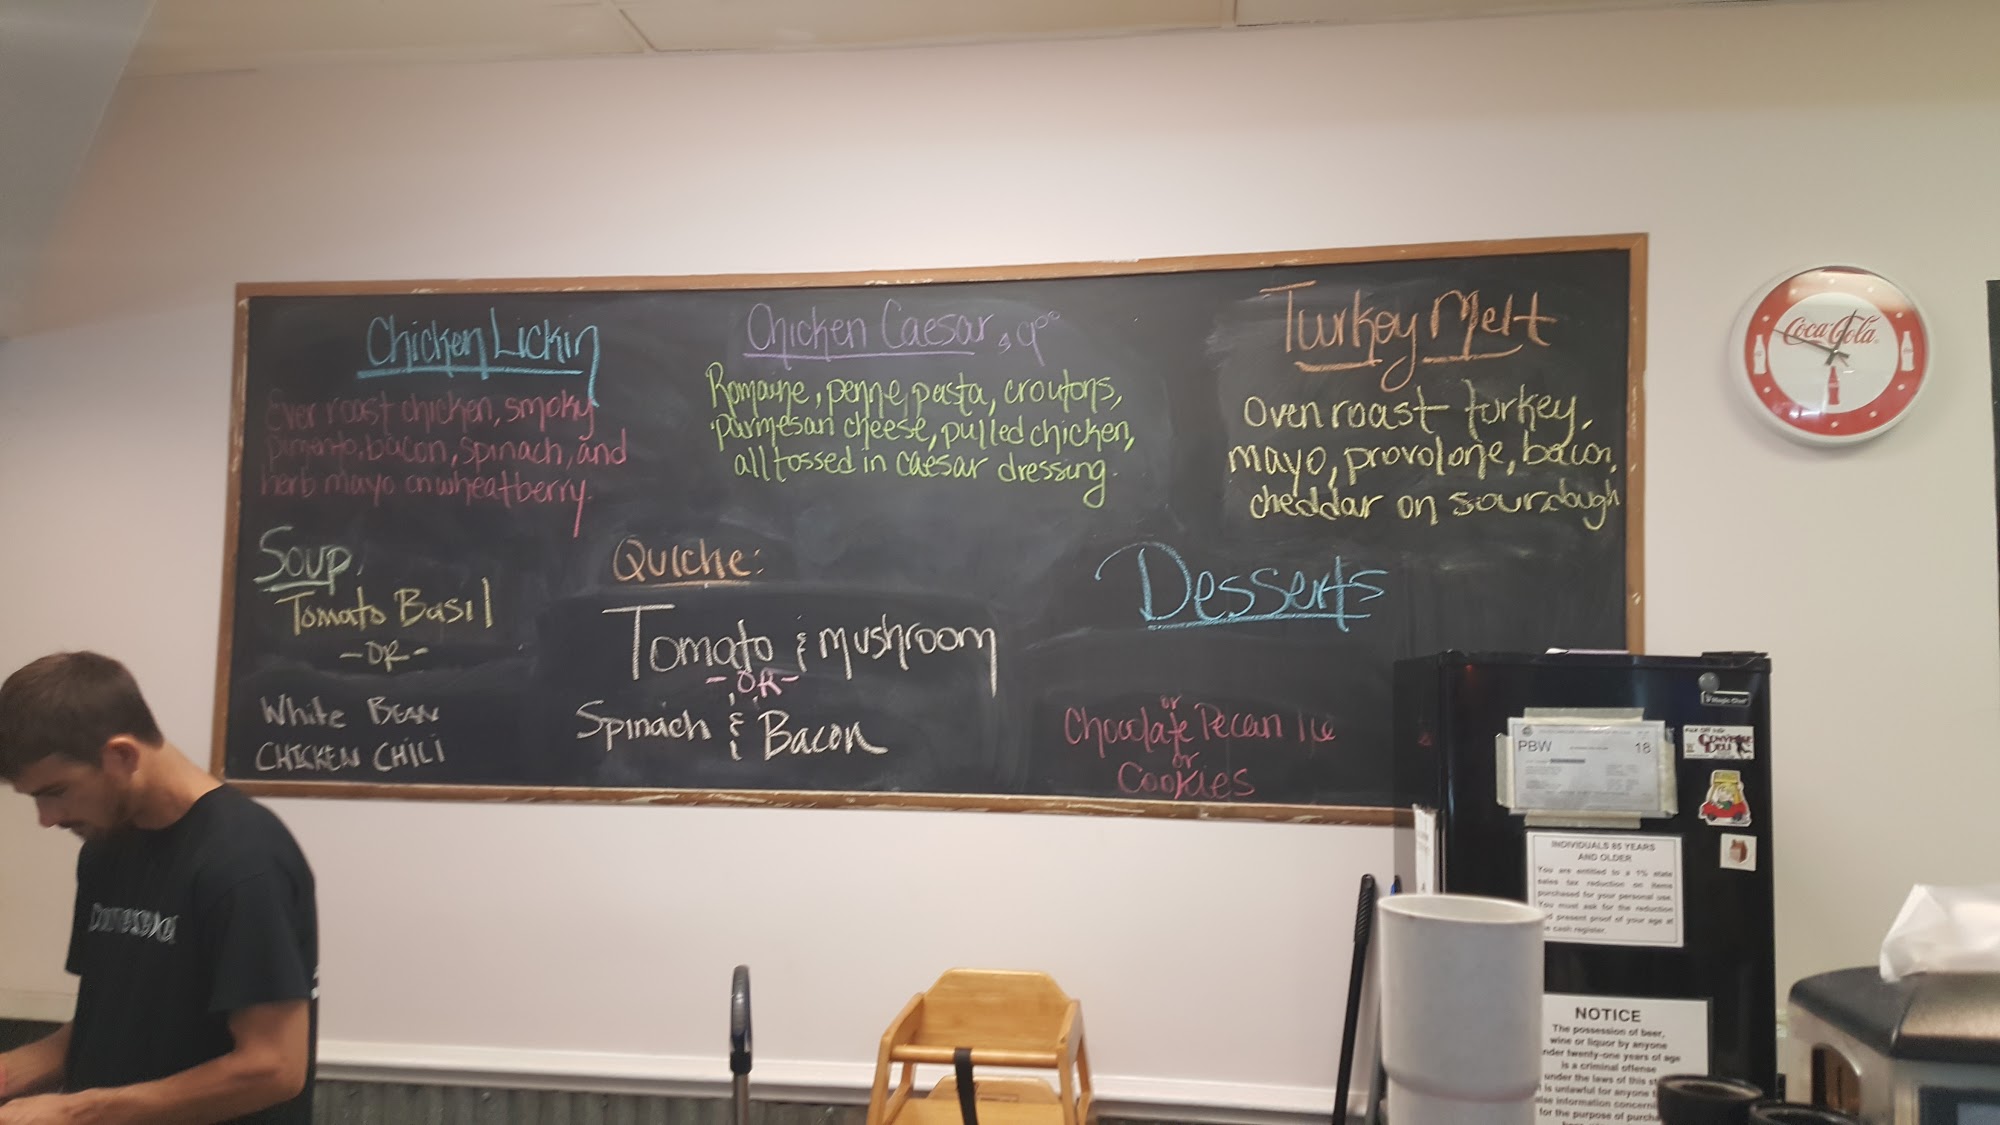 Chicken Lickin
Ever roast chicken, smoky
pimento, bacon, spinach, and
herb mayo on wheatberry.
Chicken Caesar
Romaine, penne, pasta, croutons,
parmesan cheese, pulled chicken,
all tossed in caesar dressing.
Turkey Melt
Oven roast turkey,
mayo, provolone, bacon,
cheddar on sourdough
Soup
Tomato Basil
-OR-
White BEAN
CHICKEN CHILI
QUICHE:
Tomato & mushroom
-OR-
Spinach & Bacon
Desserts
or
Chocolate Pecan
or
Cookies
Coca-Cola
Magic Chef
PBW 18
DELI
INDIVIDUALS 85 YEARS
AND OLDER
You are entitled to a 1% state
sales tax reduction on items
purchased for your personal use.
You must ask for the reduction
present proof of your age at
cash register.
NOTICE
The possession of beer,
wine or liquor by anyone
under twenty-one years of age
is a criminal offense
under the laws of this
is unlawful for anyone
false information
for the purpose of